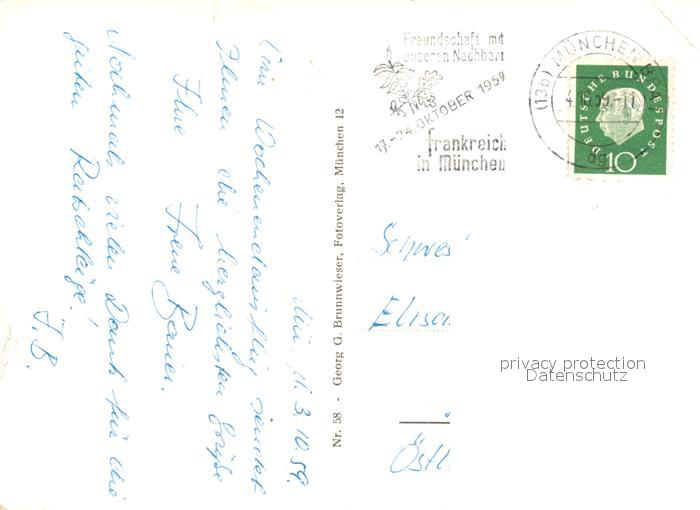 Mü. d. 3.10.59.
Vom Wochenendausflug sendet
Ihnen die herzlichsten Grüße
Ihre Irene Bauer.
Nochmals vielen Dank für die
guten Ratschläge!
I.B.
Nr. 58 - Georg G. Brunnwieser, Fotoverlag, München 12
Freundschaft mit
unseren Nachbarn
17.-24. OKTOBER 1959
frankreich
in München
(13b) MÜNCHEN
4.10.59.-11
DEUTSCHE BUNDESPOST
10
Schwes
Elisa
Östl.
privacy protection
Datenschutz